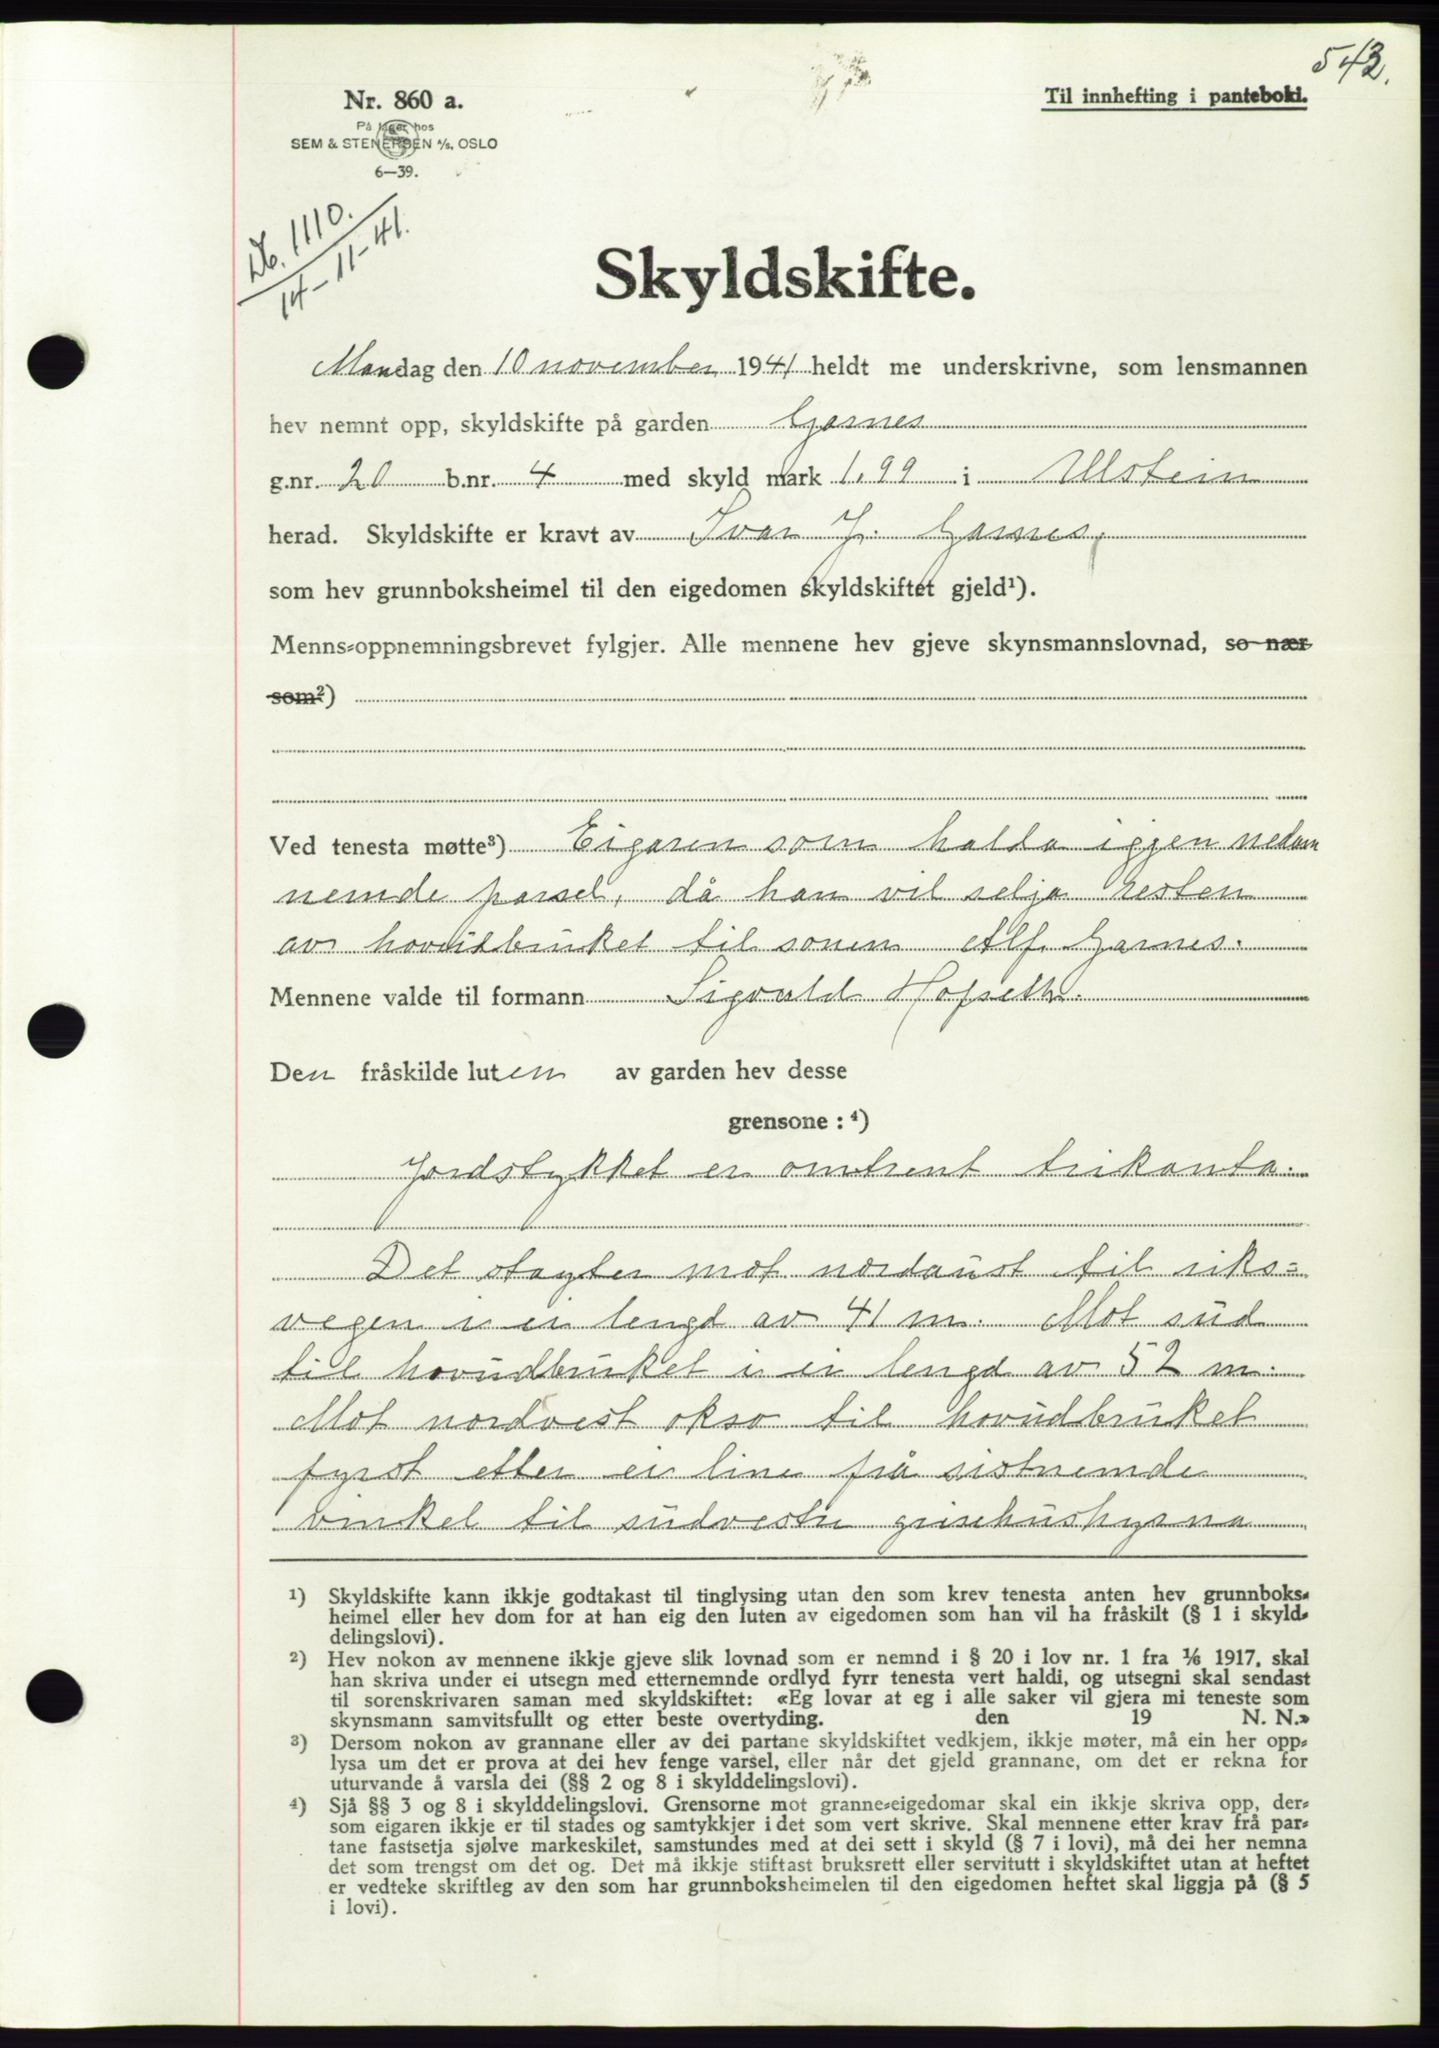 543.
Nr. 860 a.
Til innhefting i panteboki.
På lager hos
SEM & STENERSEN A/S, OSLO
6—39.
Nr. 1110.
14-11-41.
Skyldskifte.
Mandag den 10 november 1941 heldt me underskrivne, som lensmannen
hev nemnt opp, skyldskifte på garden Garnes
g.nr. 20 b.nr. 4 med skyld mark 1,99 i Ulstein
herad. Skyldskifte er kravt av Ivar J. Garnes,
som hev grunnboksheimel til den eigedomen skyldskiftet gjeld¹).
Menns-oppnemningsbrevet fylgjer. Alle mennene hev gjeve skynsmannslovnad, so nær
som²)
Ved tenesta møtte³) Eigaren som halda iggjen nedam
nemde parsel, då han vil selja resten
av hovudbruket til sonen Alf Garnes.
Mennene valde til formann Sigvald Hofseth.
Den fråskilde luten av garden hev desse
grensone : ⁴)
Jordstykket er omtrent trikanta.
Det støyter mot nordaust til riks=
vegen i ei lengd av 41 m. Mot sud
til hovudbruket i ei lengd av 52 m.
Mot nordvest okso til hovudbruket
fyrst etter ei line frå sistnemde
vinkel til sudvestre grisehushyrna
¹) Skyldskifte kann ikkje godtakast til tinglysing utan den som krev tenesta anten hev grunnboks-
heimel eller hev dom for at han eig den luten av eigedomen som han vil ha fråskilt (§ 1 i skyld-
delingslovi).
²) Hev nokon av mennene ikkje gjeve slik lovnad som er nemnd i § 20 i lov nr. 1 fra 1/6 1917, skal
han skriva under ei utsegn med etternemnde ordlyd fyrr tenesta vert haldi, og utsegni skal sendast
til sorenskrivaren saman med skyldskiftet: «Eg lovar at eg i alle saker vil gjera mi teneste som
skynsmann samvitsfullt og etter beste overtyding. den 19 N. N.»
³) Dersom nokon av grannane eller av dei partane skyldskiftet vedkjem, ikkje møter, må ein her opp-
lysa um det er prova at dei hev fenge varsel, eller når det gjeld grannane, om det er rekna for
uturvande å varsla dei (§§ 2 og 8 i skylddelingslovi).
⁴) Sjå §§ 3 og 8 i skylddelingslovi. Grensorne mot granne-eigedomar skal ein ikkje skriva opp, der-
som eigaren ikkje er til stades og samtykkjer i det som vert skrive. Skal mennene etter krav frå par-
tane fastsetja sjølve markeskilet, samstundes med at dei sett i skyld (§ 7 i lovi), må dei her nemna
det som trengst om det og. Det må ikkje stiftast bruksrett eller servitutt i skyldskiftet utan at heftet
er vedteke skriftleg av den som har grunnboksheimelen til den eigedomen heftet skal liggja på (§ 5
i lovi).